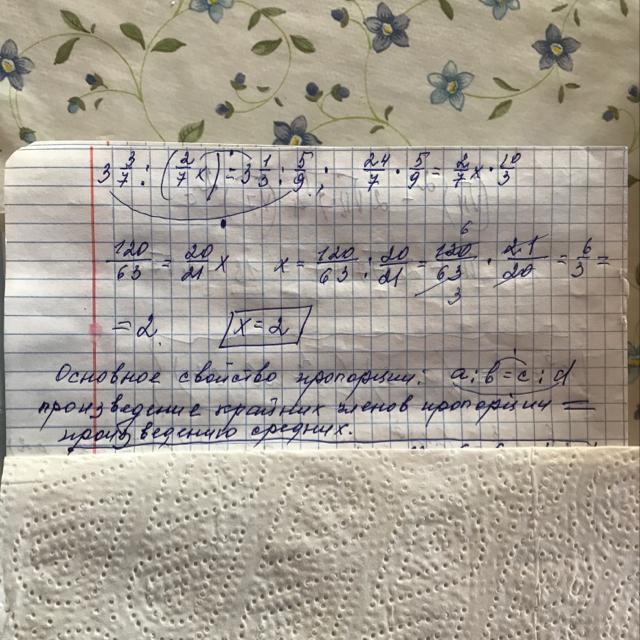 3 3/7 : (2/7 x) = 3 1/3 : 5/9; 24/7 · 5/9 = 2/7 x · 10/3
120/63 = 20/21 x x = 120/63 : 20/21 = 120/63 · 21/20 = 6/3 =
= 2. x = 2
Основное свойство пропорции: a : b = c : d
произведение крайних членов пропорции =
произведению средних.